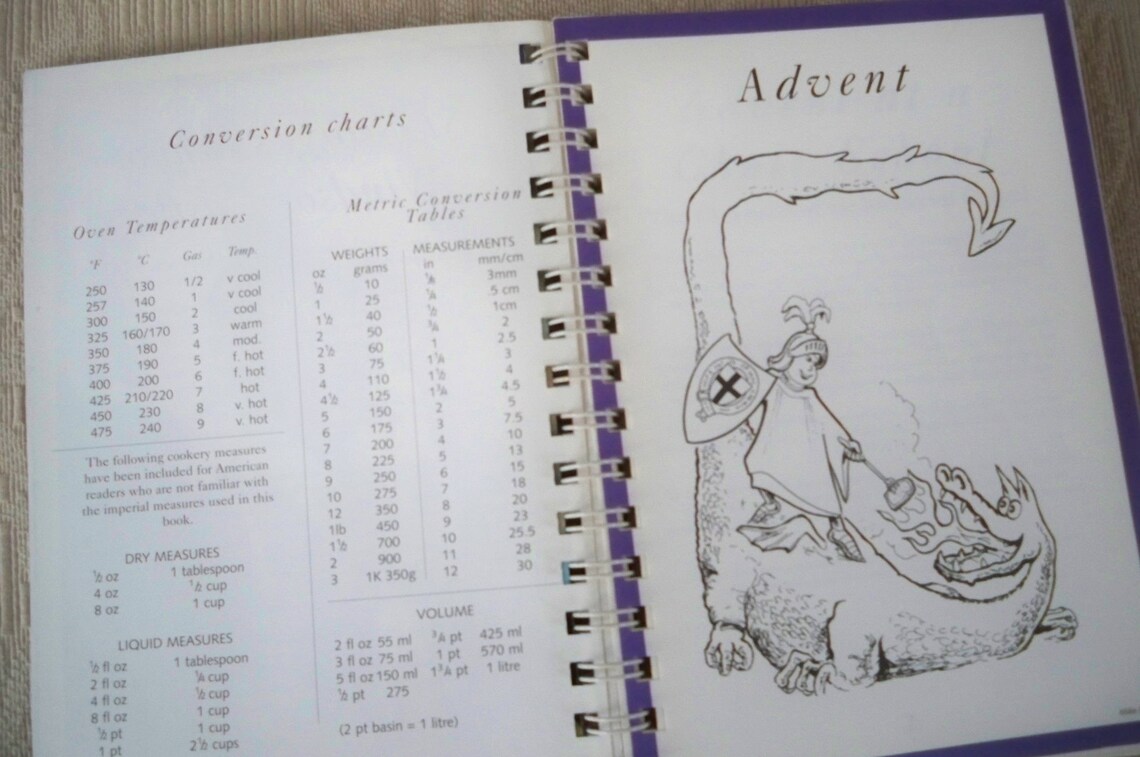 Conversion charts
Oven Temperatures
°F °C Gas Temp.
250 130 1/2 v cool
257 140 1 v cool
300 150 2 cool
325 160/170 3 warm
350 180 4 mod.
375 190 5 f. hot
400 200 6 f. hot
425 210/220 7 hot
450 230 8 v. hot
475 240 9 v. hot
The following cookery measures
have been included for American
readers who are not familiar with
the imperial measures used in this
book.
DRY MEASURES
½ oz 1 tablespoon
4 oz ½ cup
8 oz 1 cup
LIQUID MEASURES
½ fl oz 1 tablespoon
2 fl oz ¼ cup
4 fl oz ½ cup
8 fl oz 1 cup
½ pt 1 cup
1 pt 2½ cups
Metric Conversion
Tables
WEIGHTS
oz grams
½ 10
1 25
1½ 40
2 50
2½ 60
3 75
4 110
4½ 125
5 150
6 175
7 200
8 225
9 250
10 275
12 350
1lb 450
1½ 700
2 900
3 1K 350g
MEASUREMENTS
in mm/cm
⅛ 3mm
¼ .5 cm
½ 1cm
¾ 2
1 2.5
1¼ 3
1½ 4
1¾ 4.5
2 5
3 7.5
4 10
5 13
6 15
7 18
8 20
9 23
10 25.5
11 28
12 30
VOLUME
2 fl oz 55 ml ¾ pt 425 ml
3 fl oz 75 ml 1 pt 570 ml
5 fl oz 150 ml 1¾ pt 1 litre
½ pt 275
(2 pt basin = 1 litre)
Advent